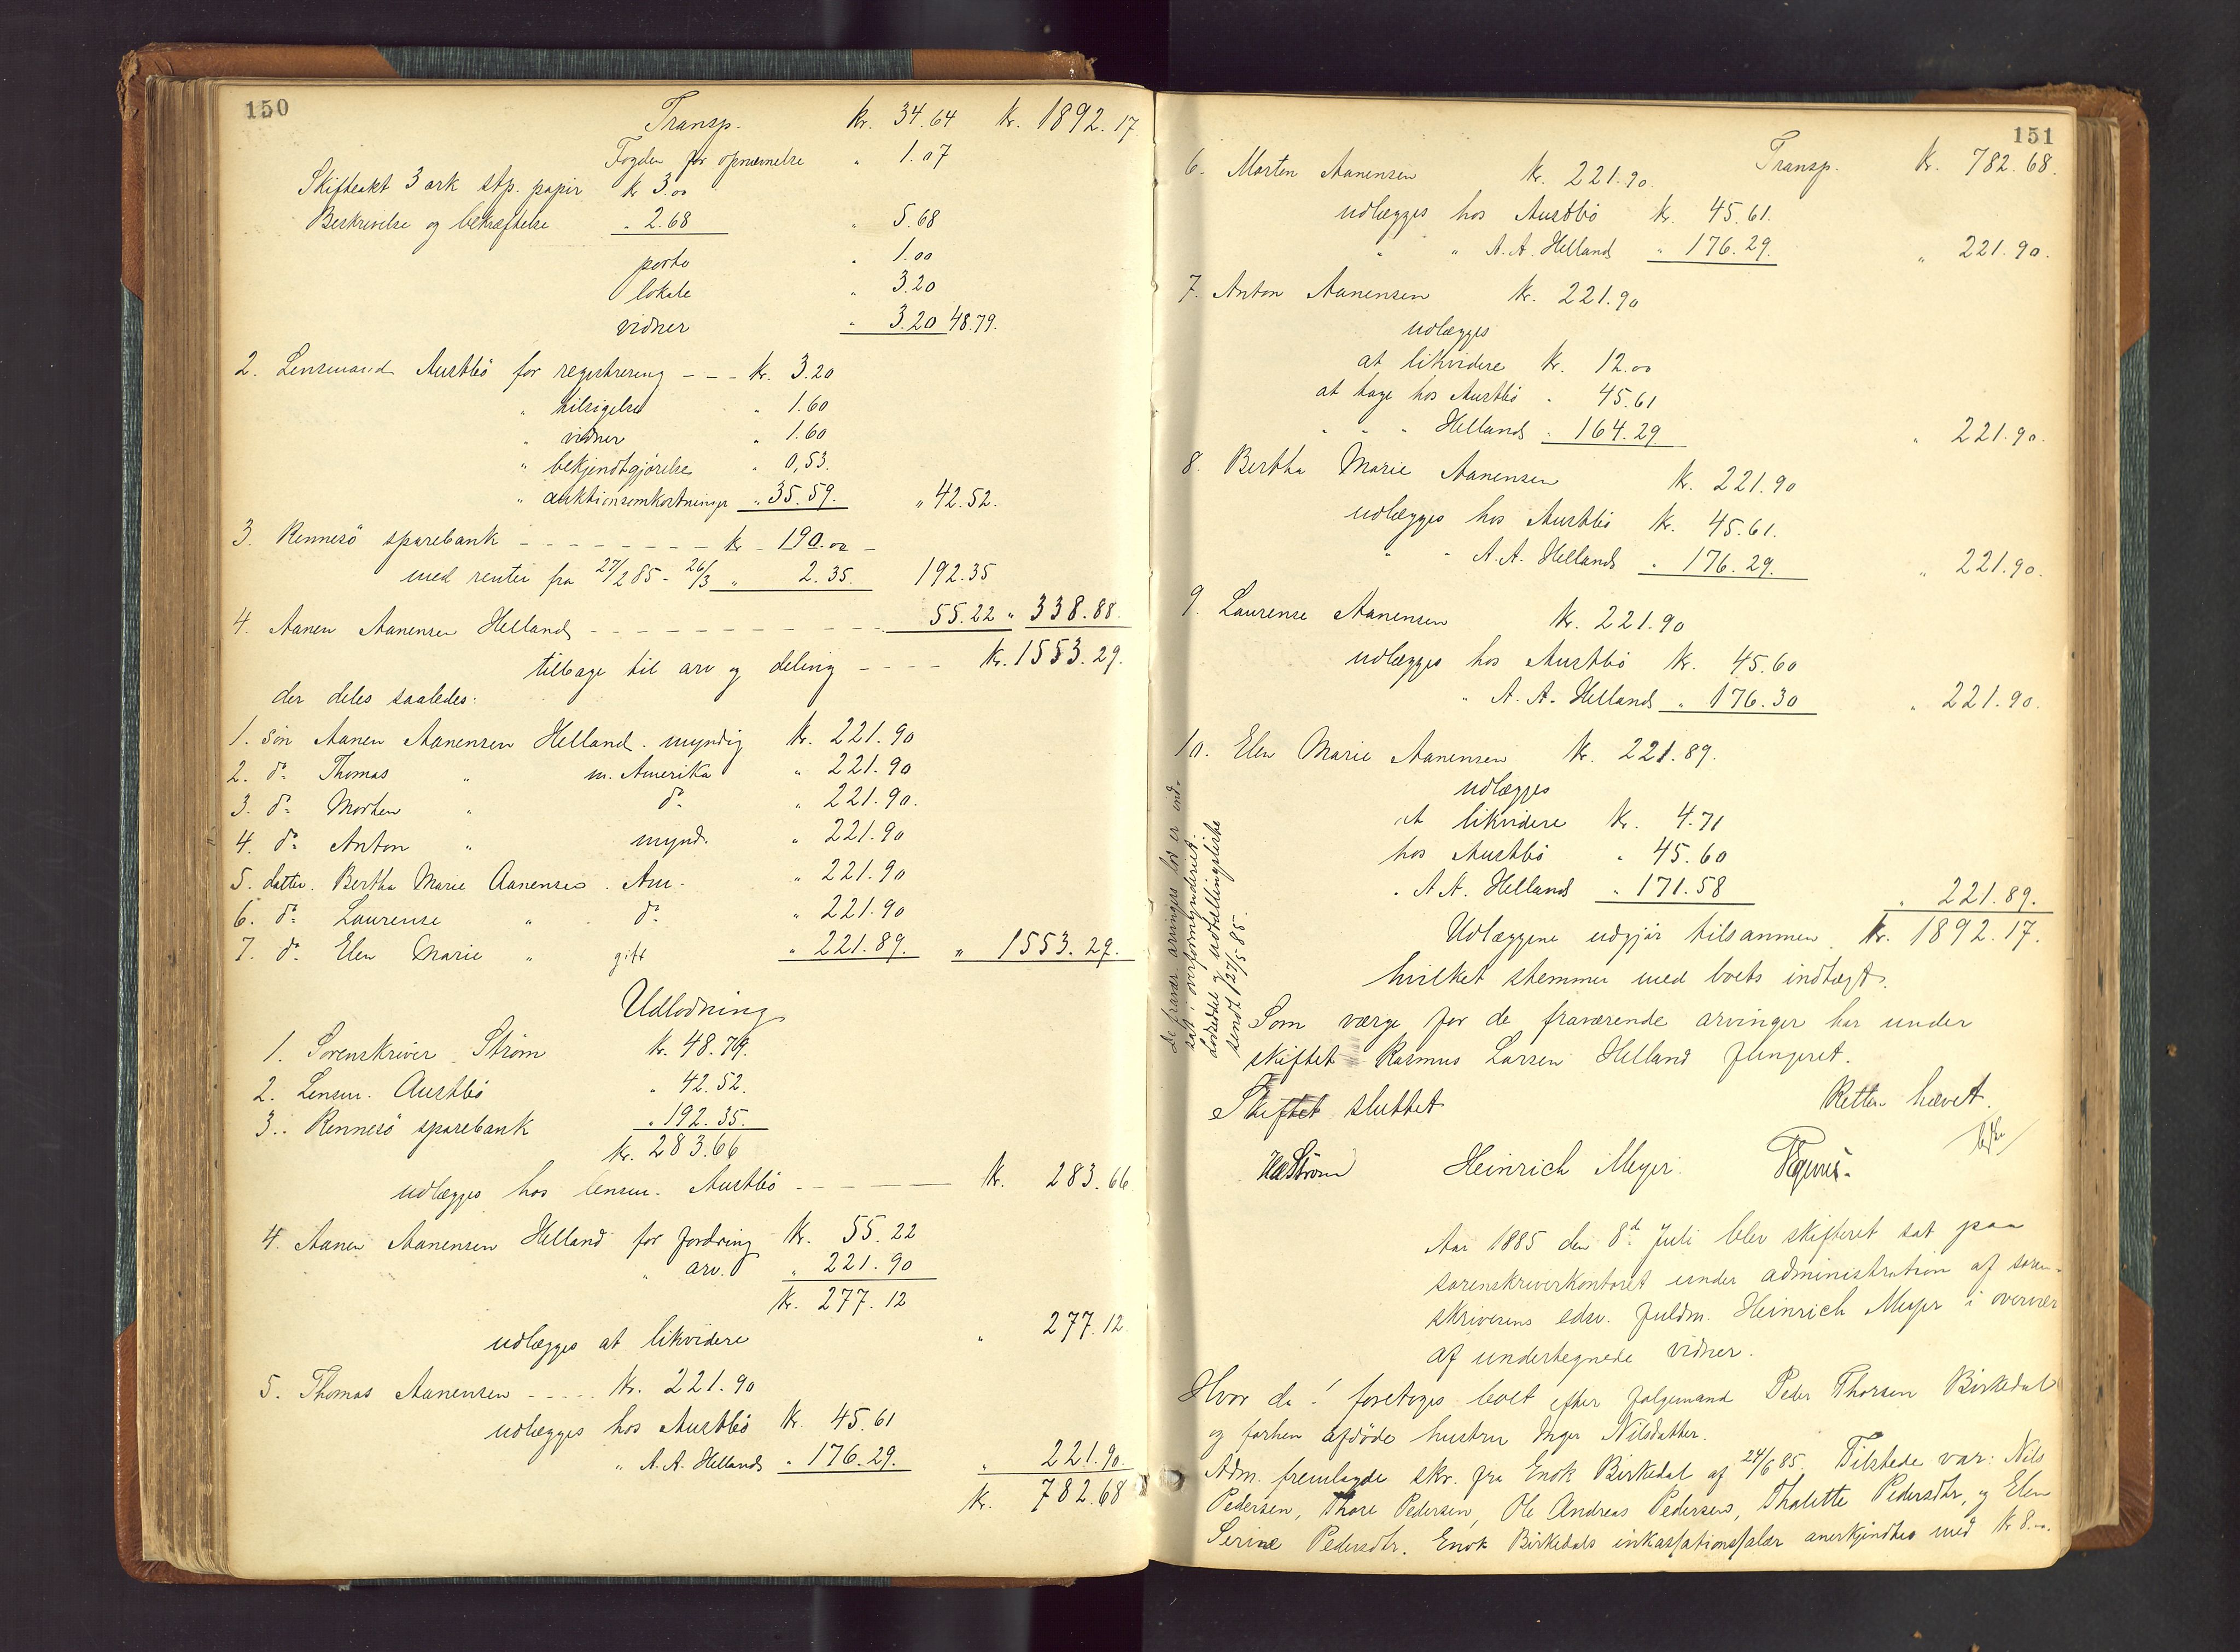 150
Transp. kr. 34.64 kr. 1892.17
Fogden for opnævnelse " 1.07
Skifteakt 3 ark stp. papir kr 3.00
Beskrivelse og bekræftelse " 2.68 " 5.68
porto " 1.00
lokale " 3.20
vidner " 3.20 48.79.
2. Lensmand Austbö for registrering - - - kr. 3.20
" tilsigelse " 1.60
" vidner " 1.60
" bekjendtgjörelse " 0,53.
" auktionsomkostninger " 35.59. " 42.52.
3. Rennesö sparebank - - - - - - - - kr - 190.00 -
med renter fra 27/2 85 - 26/3 " 2.35. 192.35
4. Aanen Aanensen Helland - - - - - - - - - - - 55.22 " 338.88.
tilbage til arv og deling - - - - kr. 1553.29.
der deles saaledes:
1. sön Aanen Aanensen Helland. myndig kr. 221.90
2. do Thomas " m. Amerika " 221.90
3. do Morten " do " 221.90.
4. do Anton " mynd. " 221.90
5. datter. Bertha Marie Aanensen. Am. " 221.90
6. do Laurense " do " 221.90
7. do Elen Marie " gift " 221.89. " 1553.29.
Udlodning
1. Sorenskriver Ström kr. 48.79.
2. Lensm. Austbö " 42.52.
3. Rennesö sparebank " 192.35.
kr. 283.66
udlægges hos lensm. Austbö - - - - kr. 283.66
4. Aanen Aanensen Helland for fordring kr. 55.22
" arv. " 221.90
kr. 277.12
udlægges at likvidere " 277.12
5. Thomas Aanensen - - - - kr. 221.90
udlægges hos Austbö kr. 45.61
" A. A. Helland " 176.29. " 221.90.
kr. 782.68
151
Transp. kr. 782.68.
6. Morten Aanensen kr. 221.90.
udlægges hos Austbö kr. 45.61.
" " A. A. Helland " 176.29. " 221.90.
7. Anton Aanensen kr. 221.90
udlægges
at likvidere kr. 12.00
at tage hos Austbö " 45.61
" " " Helland " 164.29 " 221.90.
8. Bertha Marie Aanensen kr. 221.90
udlægges hos Austbö kr. 45.61.
" " A. A. Helland " 176.29. " 221.90.
9. Laurense Aanensen kr. 221.90
udlægges hos Austbö kr. 45.60
" A. A. Helland " 176.30 " 221.90.
10. Elen Marie Aanensen kr. 221.89.
udlægges
at likvidere kr. 4.71
hos Austbö " 45.60
" A. A. Helland " 171.58 " 221.89.
Udlæggene udgjör tilsammen kr. 1892.17.
hvilket stemmer med boets indtægt.
De fravær. arvingers lod er ind-
sat i overformynderiet.
Lodseddel og udbetalingsliste
sendt 27/5 85.
Som værge for de fraværende arvinger har under
skiftet Rasmus Larsen Helland fungeret.
Skiftet sluttet Retten hævet.
Ström Heinrich Meyer.
Aar 1885 den 8de Juli blev skifteret sat paa
sorenskriverkontoret under administration af soren-
skriverens edsv. fuldm. Heinrich Meyer i overvær
af undertegnede vidner.
Hvor da! foretoges boet efter folgemand Peder Thorsen Birkedal
og forhen afdöde hustru Inger Nilsdatter.
Adm. fremlagde skr. fra Enok Birkedal af 24/6 85. Tilstede var: Nils
Pedersen, Thore Pedersen, Ole Andreas Pedersen, Thalette Pedersdtr, og Elen
Serine Pedersdtr. Enok Birkedals inkassationssalær anerkjendtes med kr 8.00.